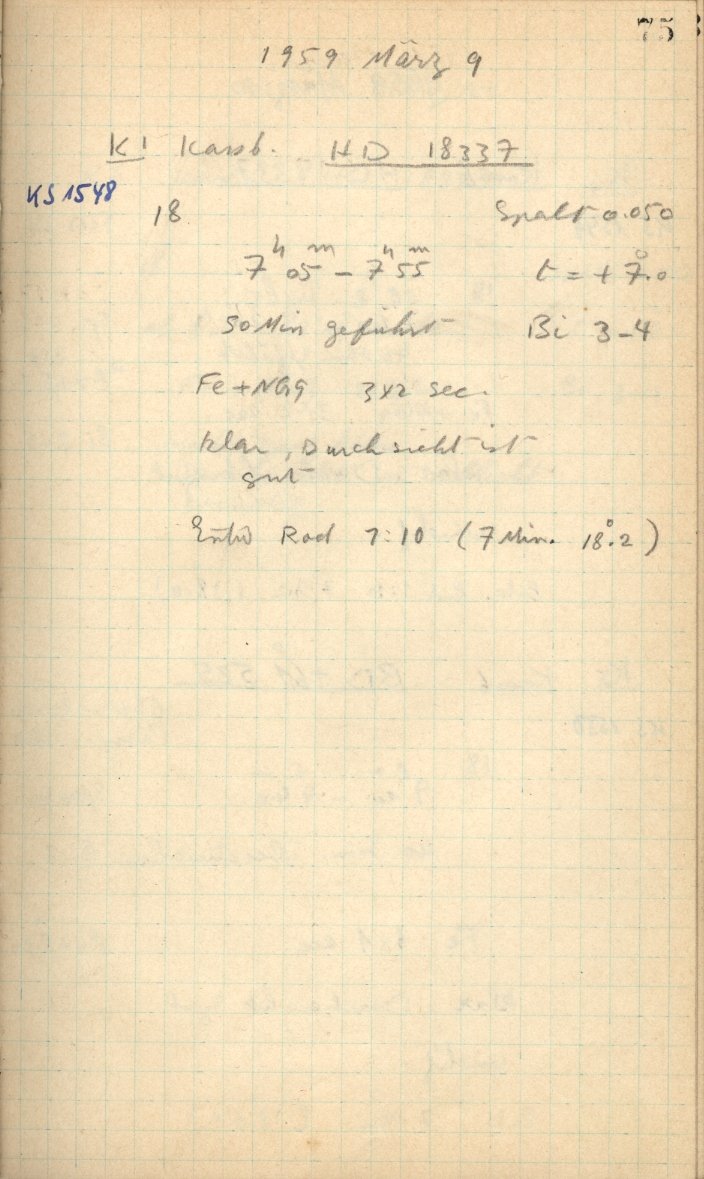 75
1959 März 9
K1 Kassb. HD 18337
KS 1548
18 Spalt 0.050
7h 05m – 7h 55m t = + 7°.0
50 Min geführt Bi 3–4
Fe + NG9 3x2 sec.
klar, Durchsicht ist
gut
Entw Rod 1:10 (7 Min. 18°.2)